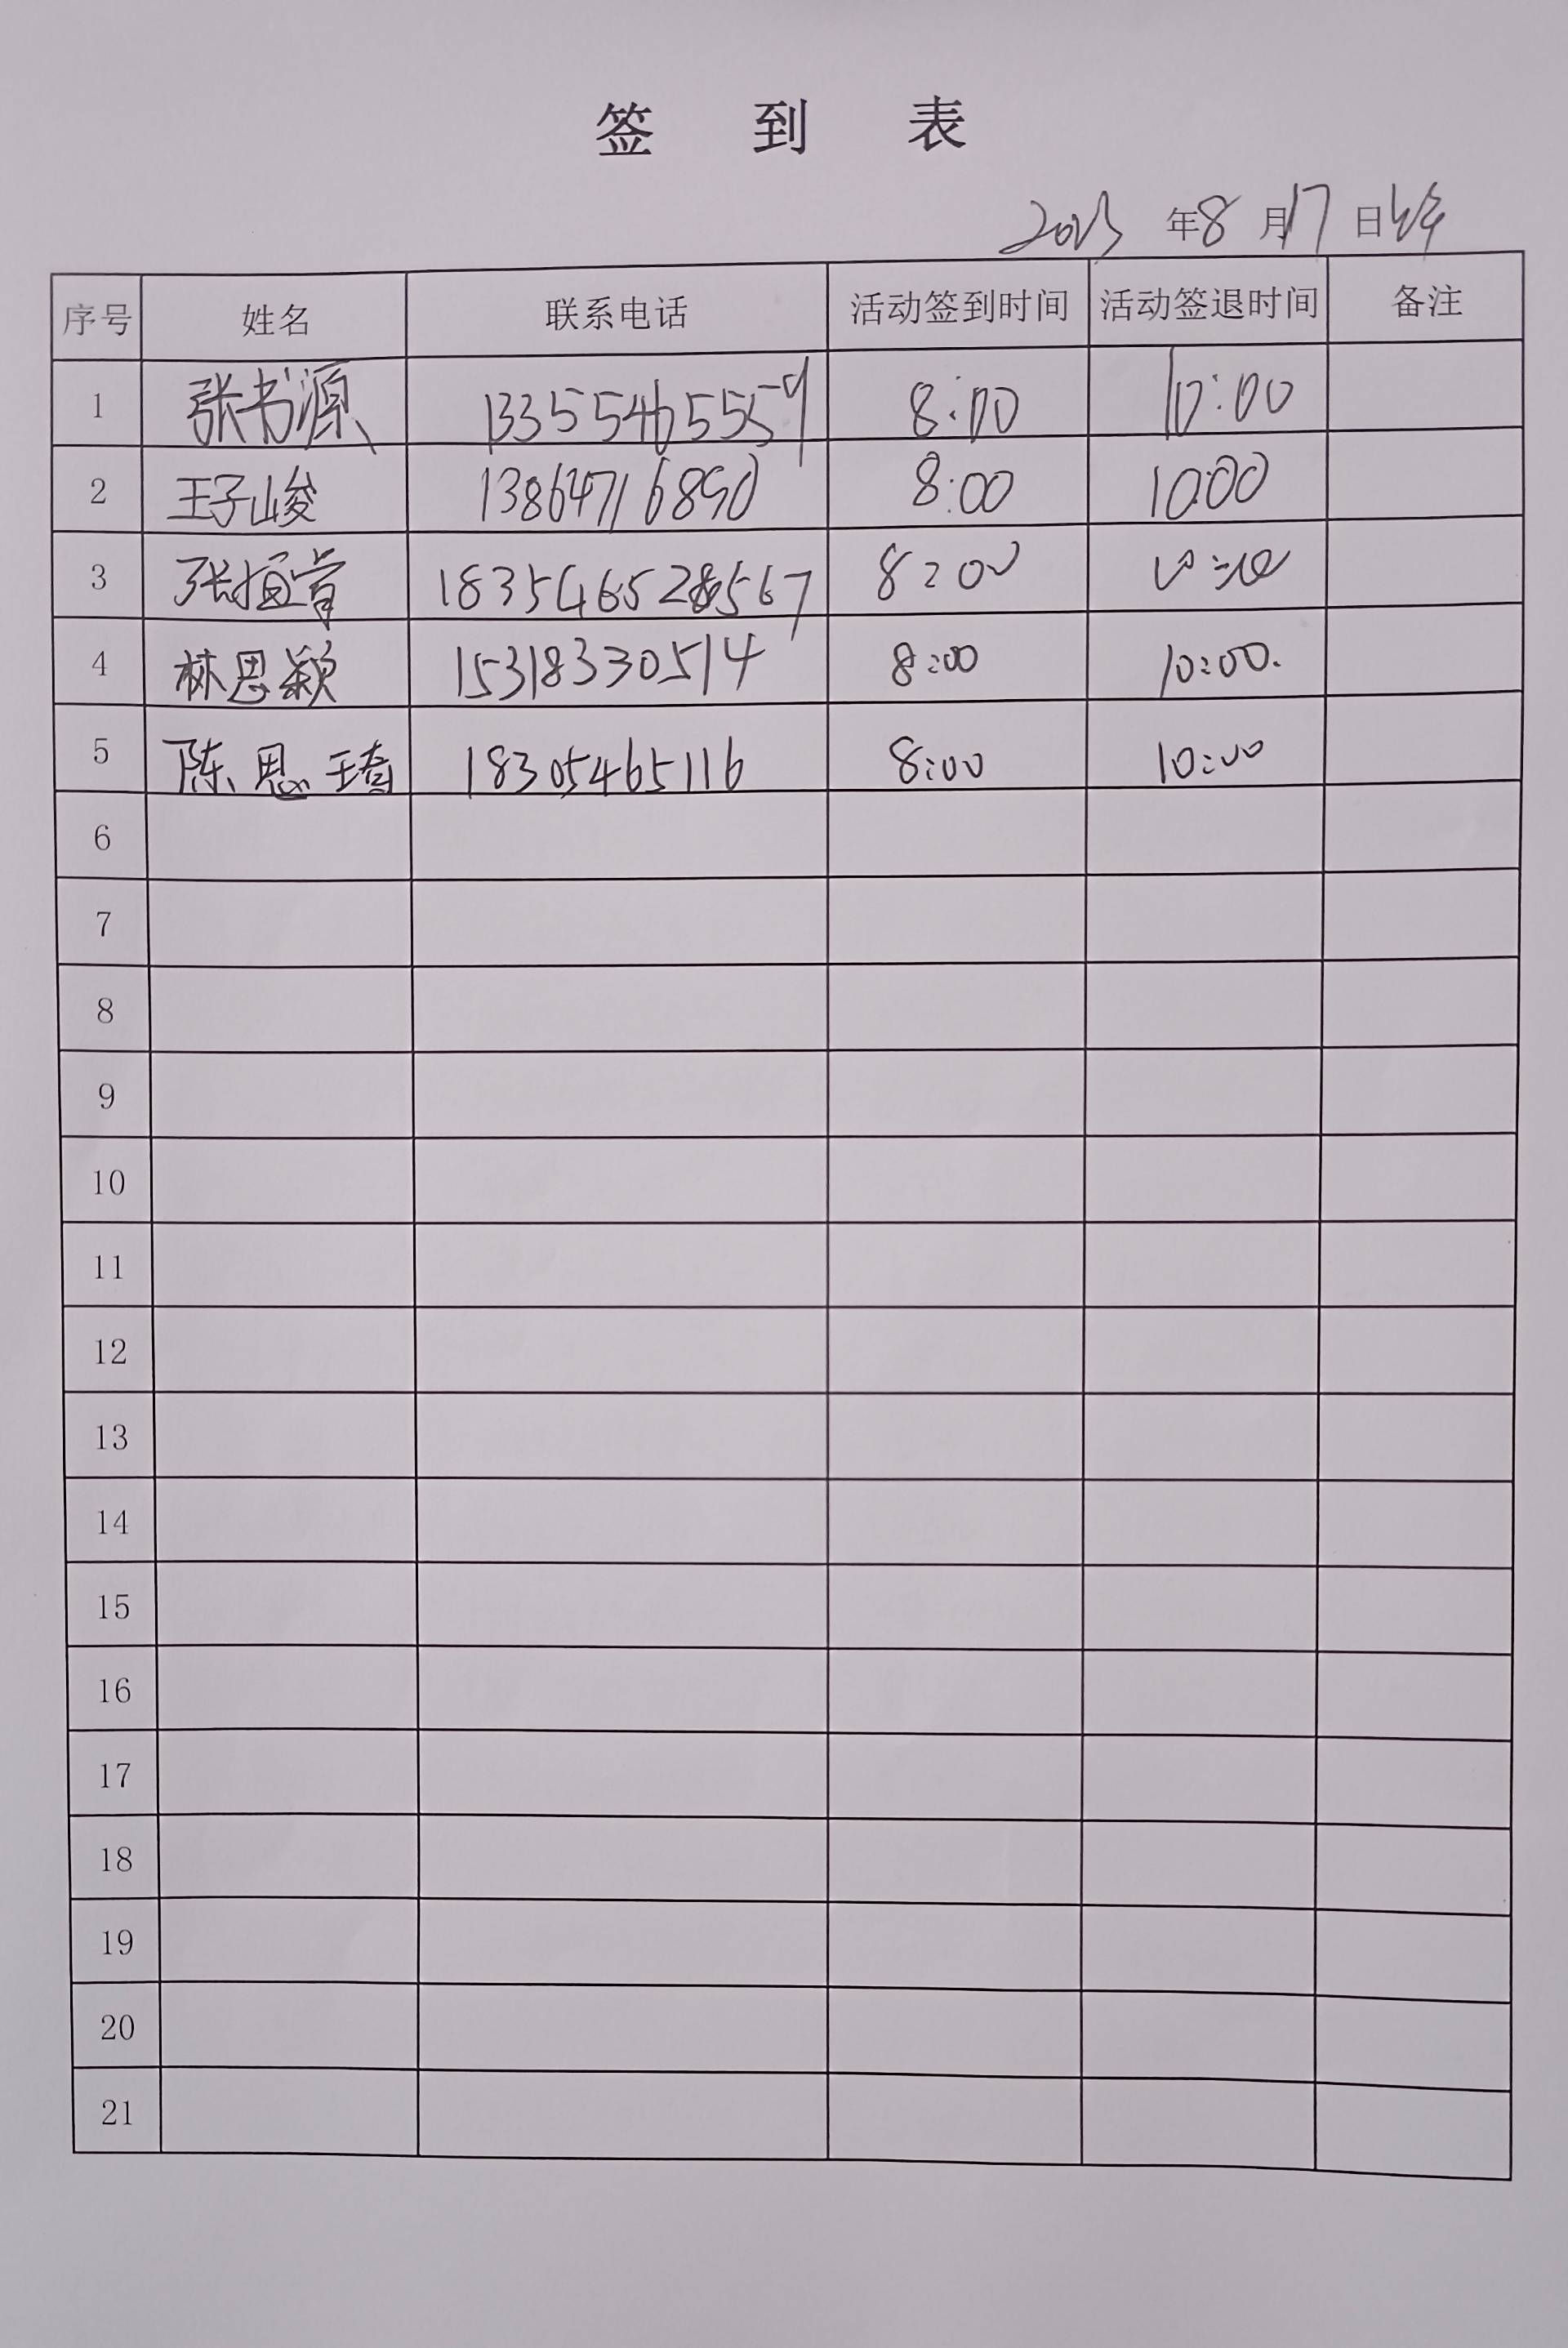 签 到 表
2023 年 8 月 17 日上午
序号 姓名 联系电话 活动签到时间 活动签退时间 备注
1 张书源 13355465559 8:00 10:00
2 王子峻 13864716890 8:00 10:00
3 张 8:00 10:00
4 林思颖 15318330514 8:00 10:00.
5 陈思琦 18305465116 8:00 10:00
6
7
8
9
10
11
12
13
14
15
16
17
18
19
20
21